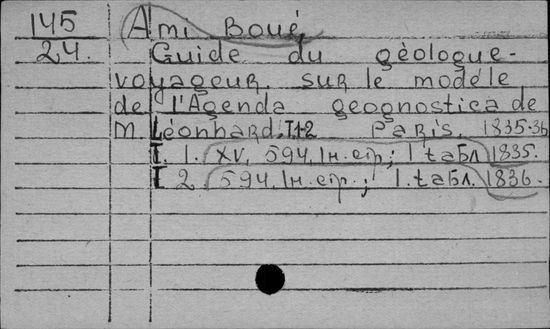 145 Ami Boué,
24. Guide du géologue-
voyageur, sur le modéle
de l'Agenda geognostica de
M. Léonhard. T.1-2 Paris, 1835-36
T. 1. XV, 594, 1 н. стр.; 1 табл. 1835.
T. 2. 594, 1 н. стр.; 1. табл. 1836.